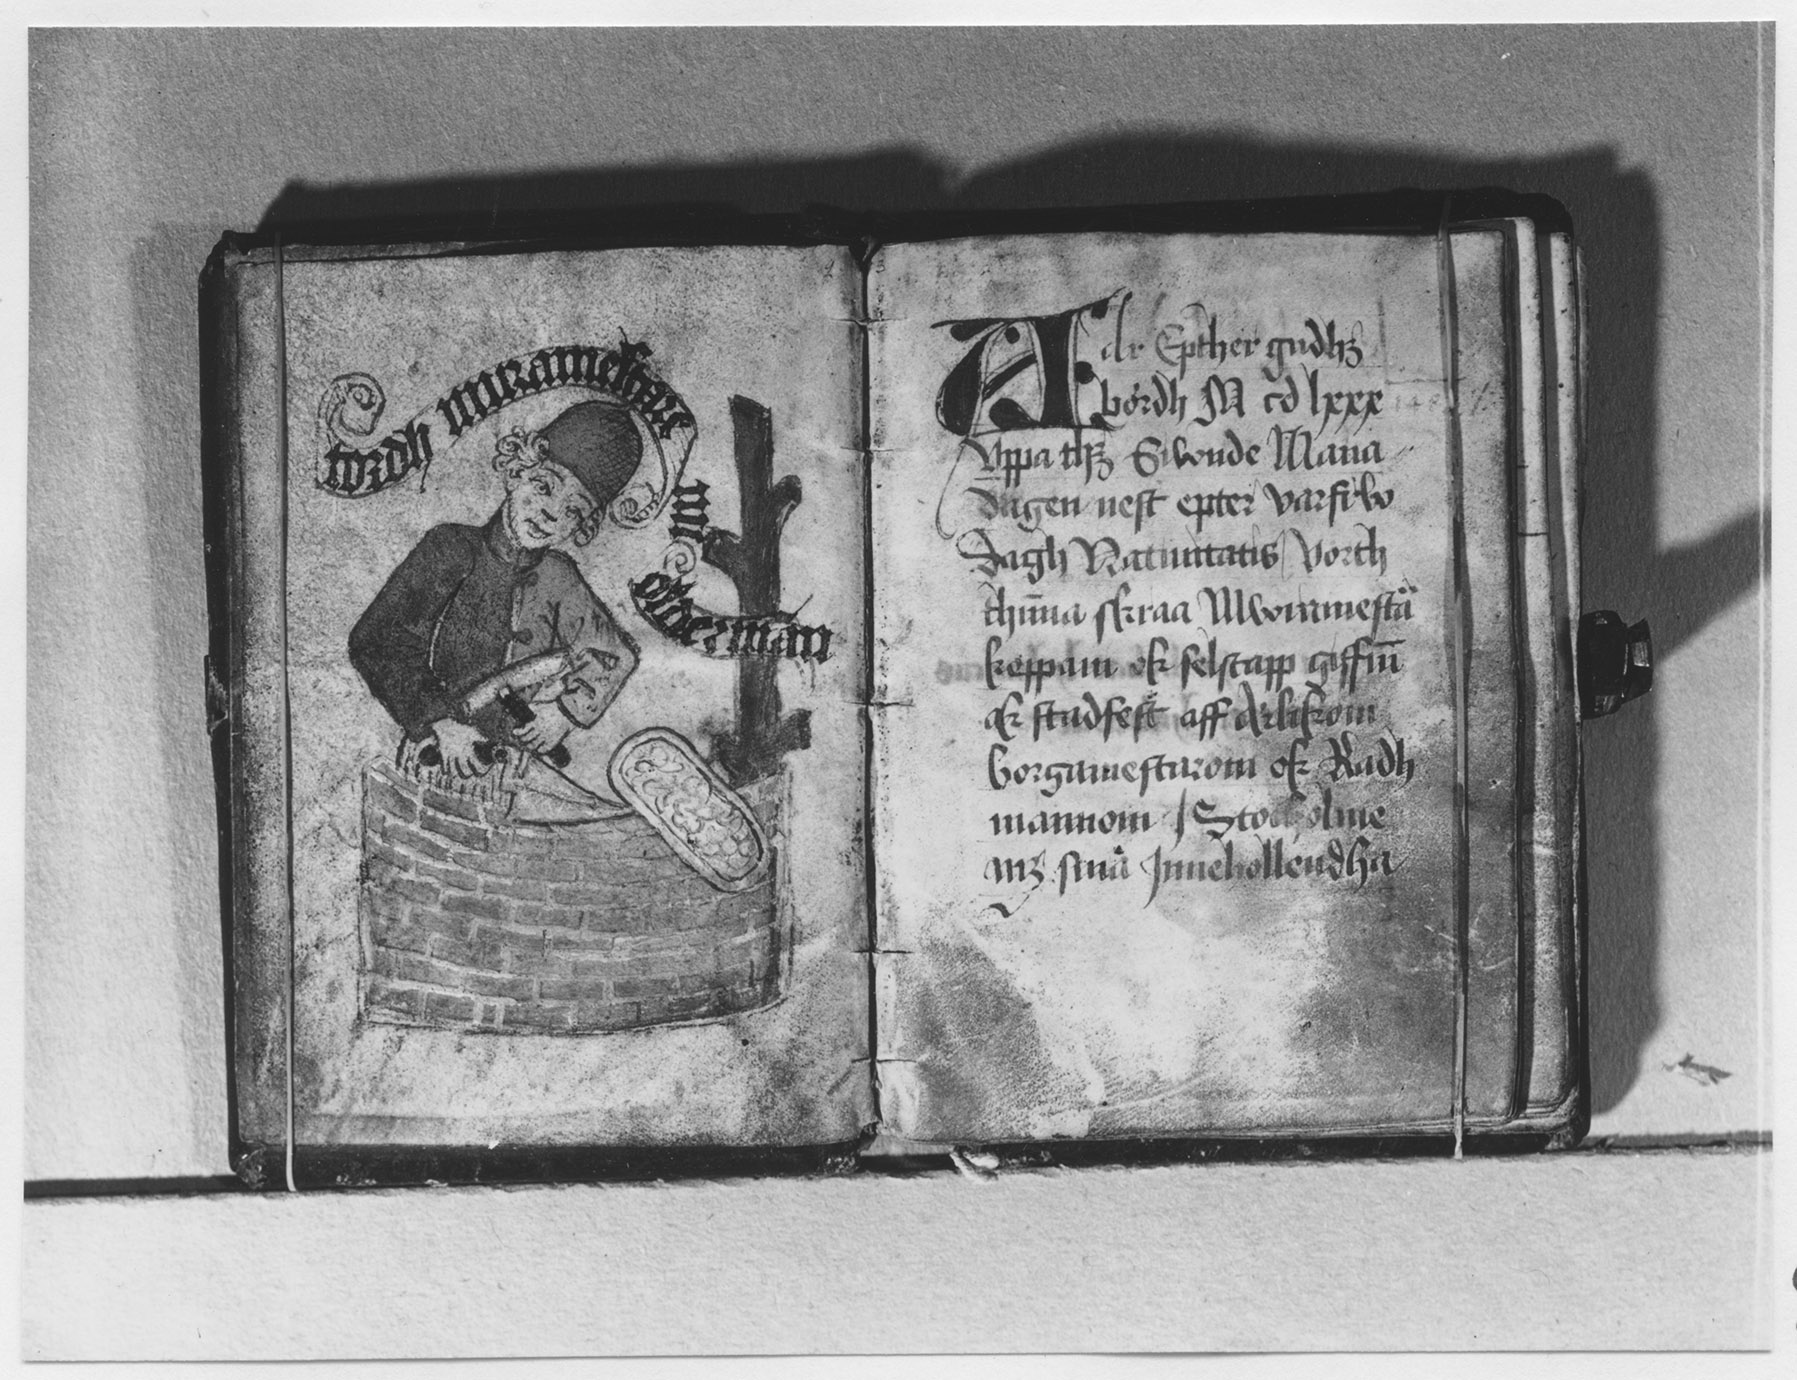 tordh muramestare
nu
olderman
Adr Epther gudhz
bordh M cd lxxx
Uppa thz Siwnde Mana
dagen nest epter varfrvo
dagh Natiuitatis vorth
thn̄na skraa Mwrmesta
keppam ok selscapp giffin̄
ok stadfest aff ärlikom
borgamestarom ok Radh
mannom J Stocholme
mz sina Jnnehollendha